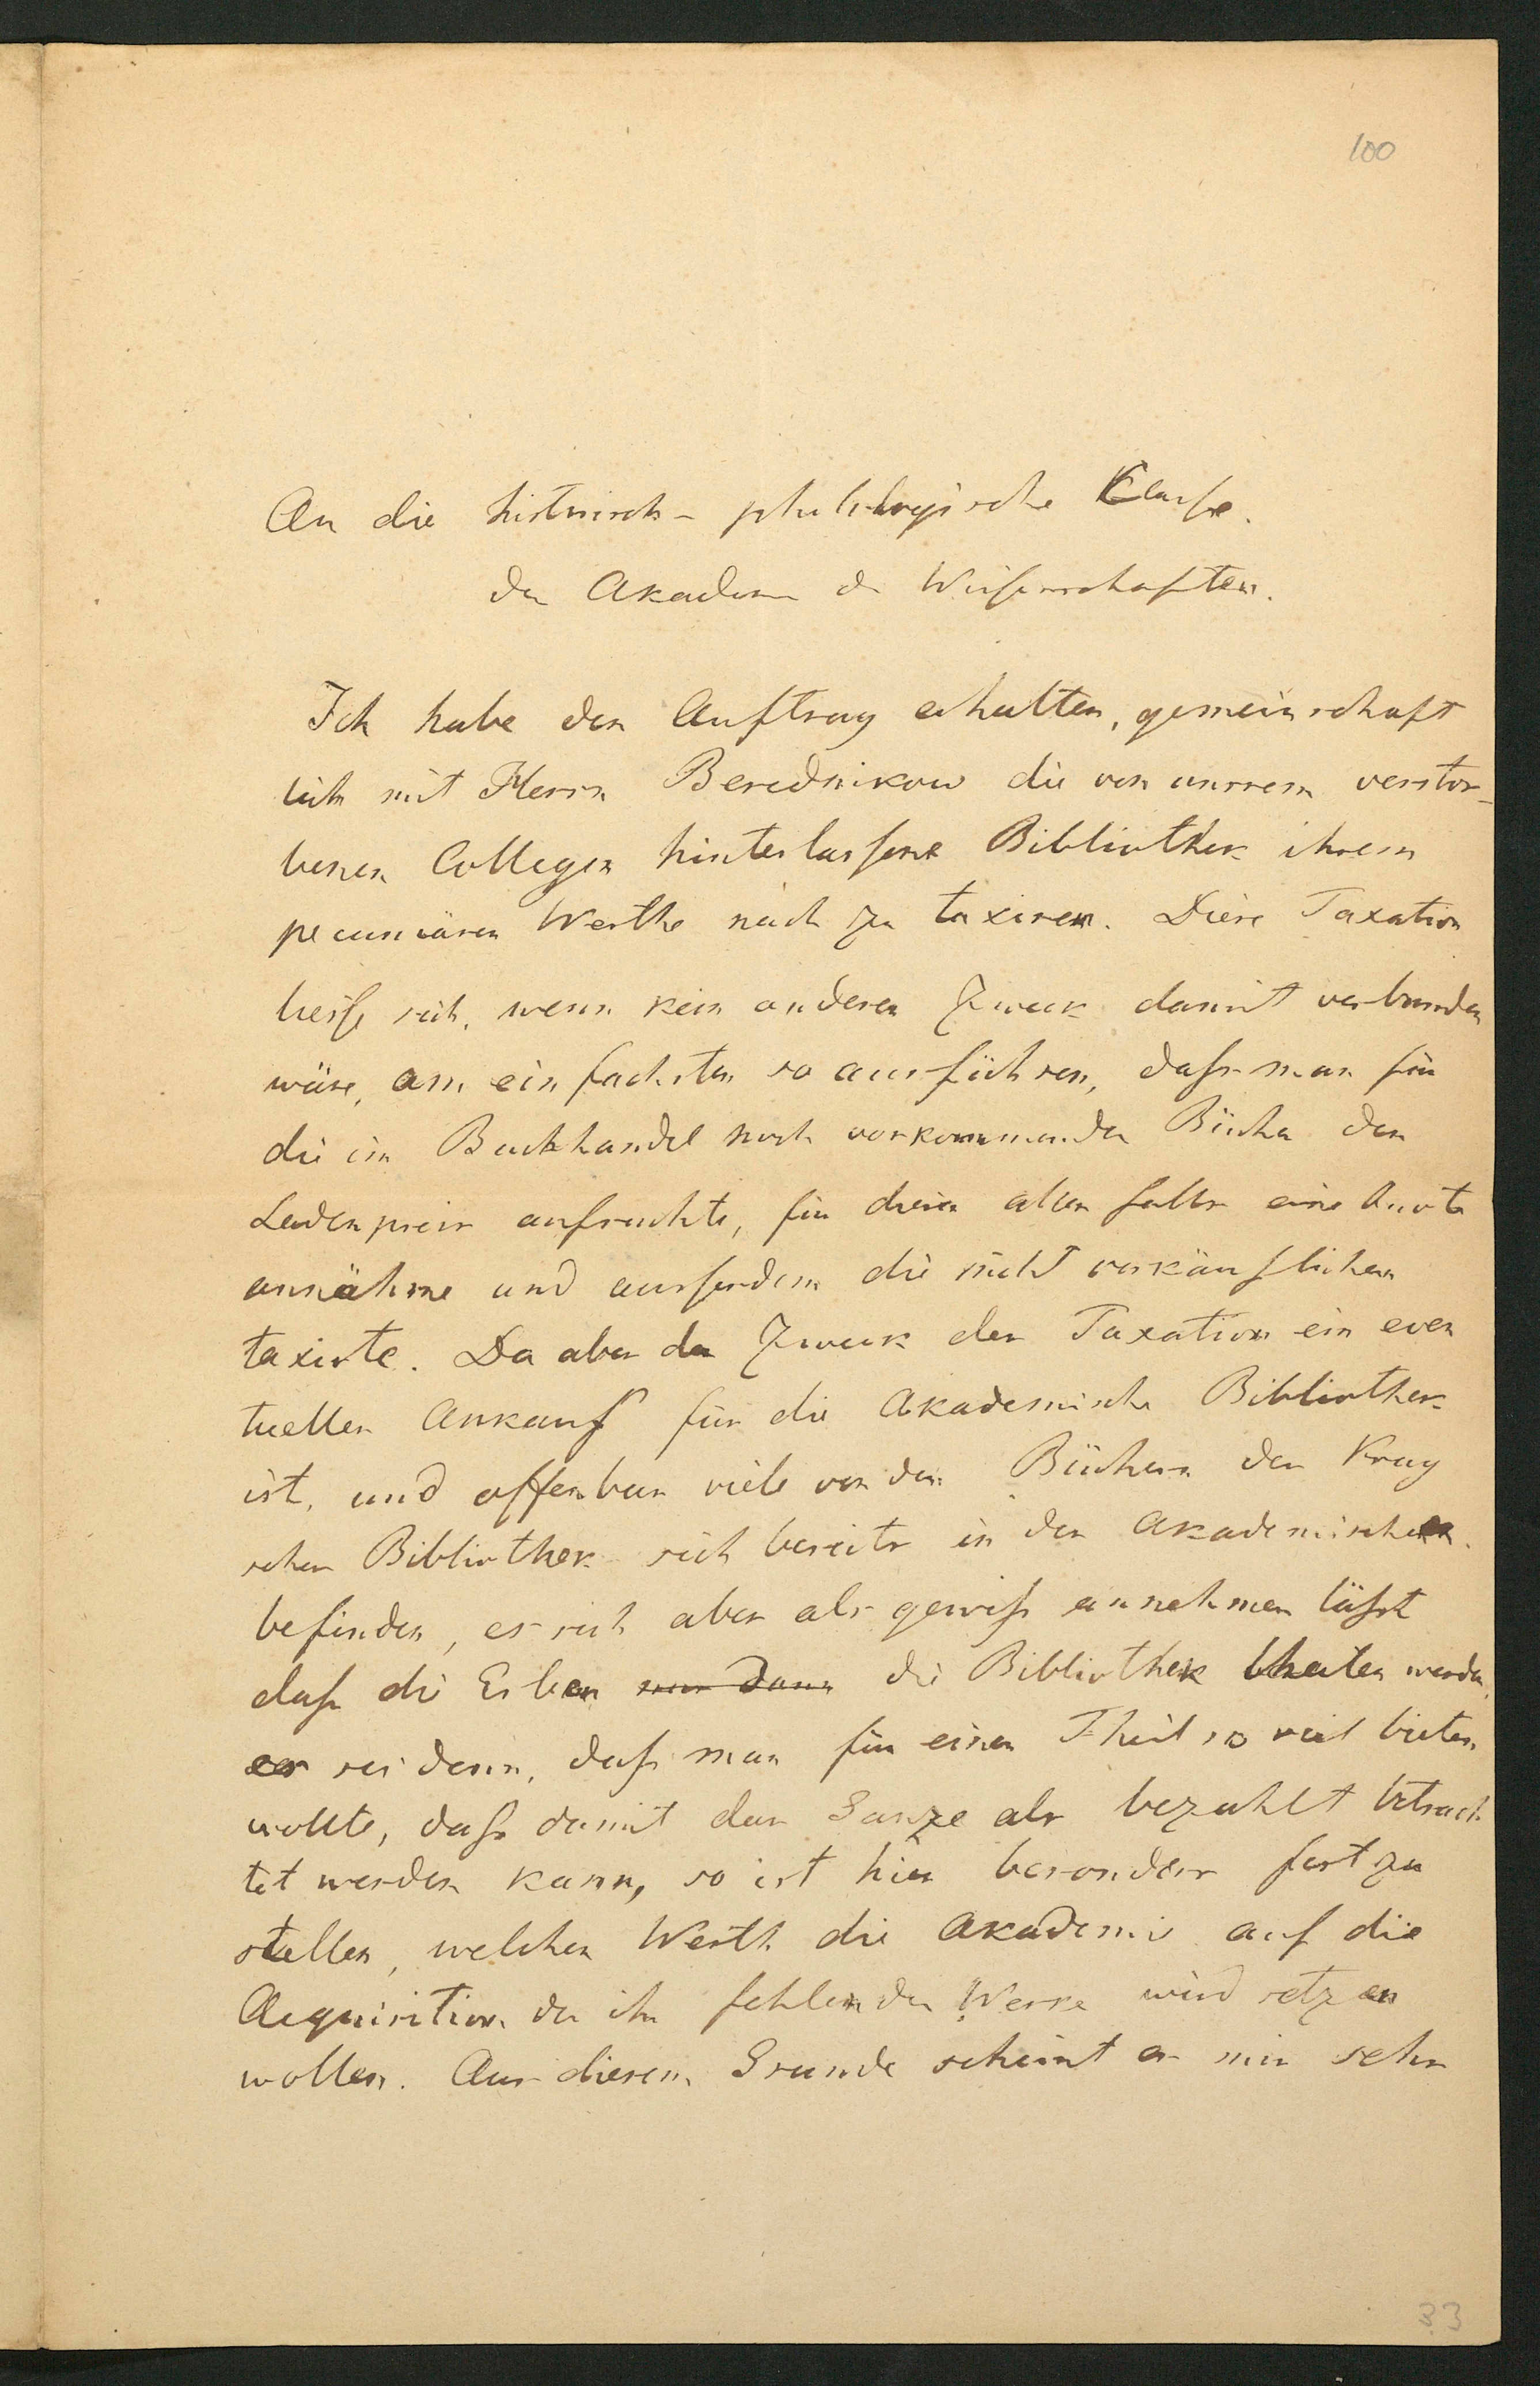 100
An die historisch-philologische Classe.
der Akademie der Wissenschaften.
Ich habe den Auftrag erhalten, gemeinschaft
lich mit Herrn Berednikow die von unsrem verstor-
benen Collegen hinterlassene Bibliothek ihrem
pecuniären Werthe nach zu taxiren. Diese Taxation
liesse sich, wenn kein anderer Zweck damit verbunden
wäre, am einfachsten so ausführen, dass man für
die im Buchhandel noch vorkommenden Bücher den
Ladenpreis aufsuchte, für diesen allenfalls eine Quote
annähme und ausserdem die nicht verkäuflichen
taxirte. Da aber der Zweck der Taxation ein even
tueller Ankauf für die Akademische Bibliothek
ist, und offenbar viele von den Büchern der Krug
schen Bibliothek sich bereits in der Akademischen
befinden, es sich aber als gewiss annehmen lässt
dass die Erben nur dann die Bibliothek theilen werden,
es sei denn, dass man für einen Theil so viel bieten
wollte, dass damit das Ganze als bezahlt betrach
tet werden kann, so ist hier besonders fest zu
stellen, welchen Werth die Akademie auf die
Acquisition der ihr fehlenden Werke wird setzen
wollen. Aus diesem Grunde scheint es mir sehr
33